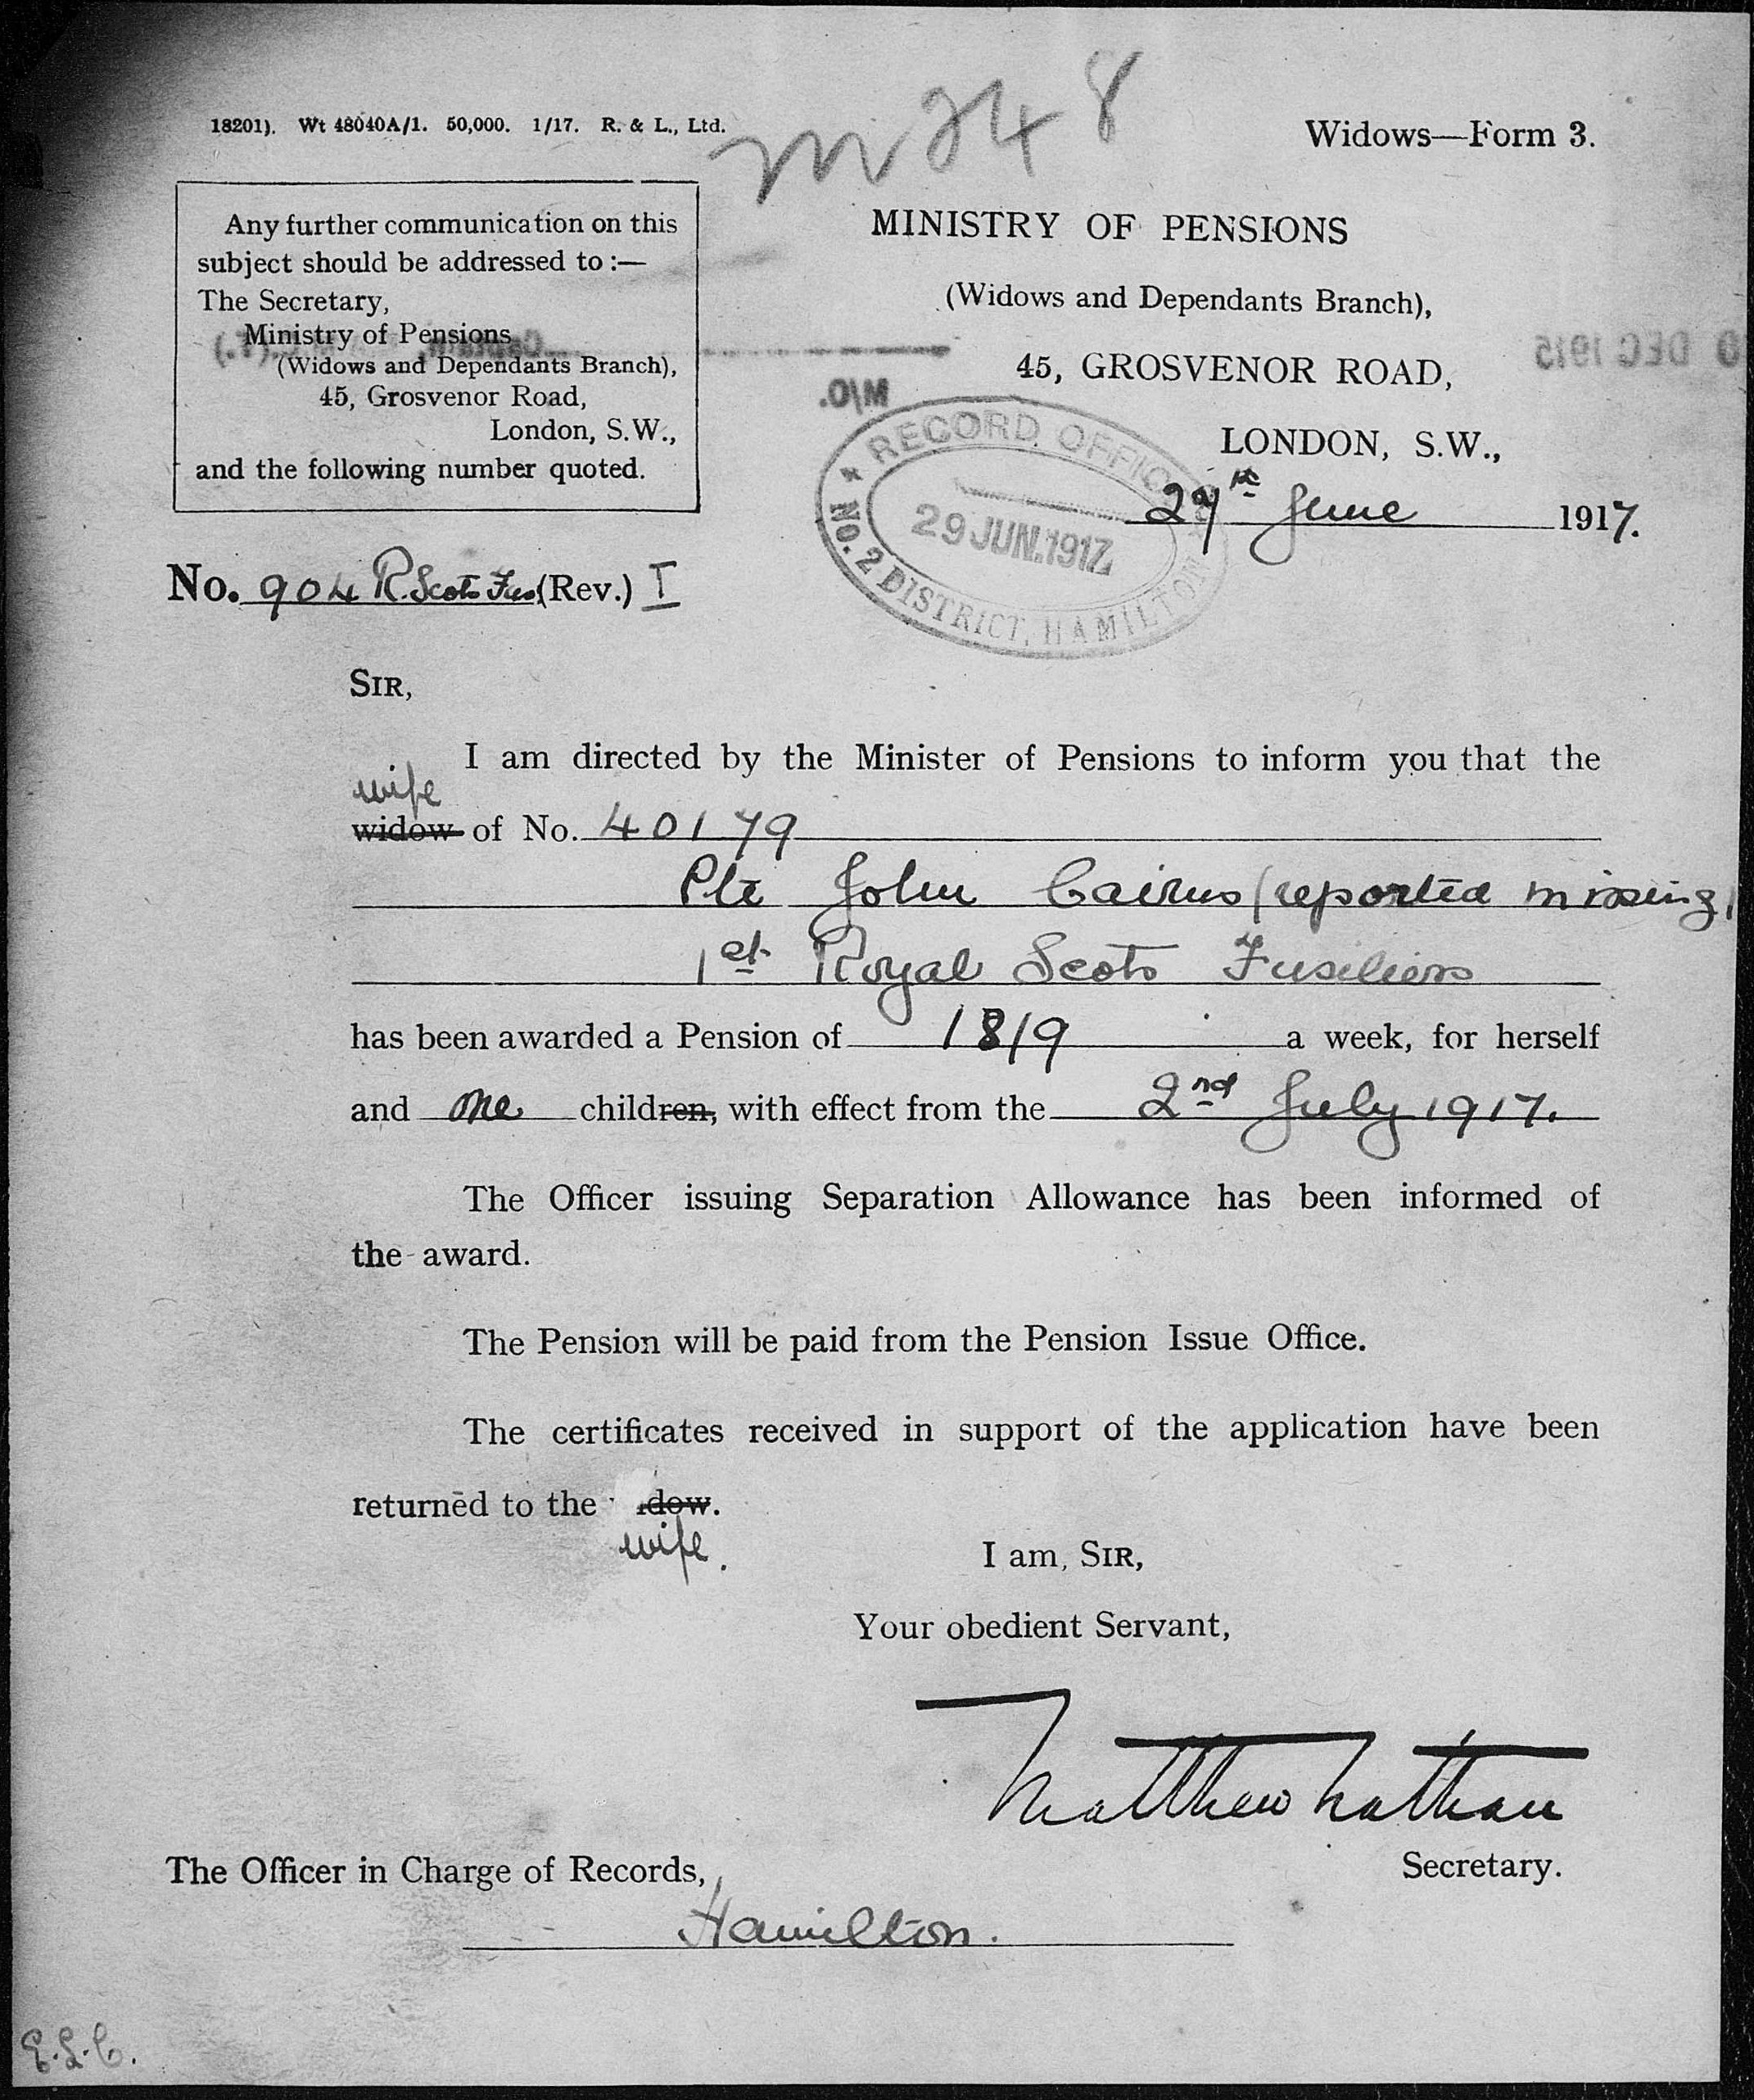 m248
18201). Wt 48040A/1. 50,000. 1/17. R. & L., Ltd.
Widows—Form 3.
Any further communication on this
subject should be addressed to :—
The Secretary,
Ministry of Pensions
(Widows and Dependants Branch),
45, Grosvenor Road,
London, S.W.,
and the following number quoted.
MINISTRY OF PENSIONS
(Widows and Dependants Branch),
45, GROSVENOR ROAD,
DEC 1915
M/O.
LONDON, S.W.,
RECORD OFFICE
29 JUN. 1917
No. 2 DISTRICT, HAMILTON
June 1917.
No. 904 R. Scots Fus (Rev.) I
SIR,
I am directed by the Minister of Pensions to inform you that the
wife
widow of No. 40179
Pte John Cairns (reported missing)
1st Royal Scots Fusiliers
has been awarded a Pension of 18/9 a week, for herself
and one children, with effect from the 2nd July 1917.
The Officer issuing Separation Allowance has been informed of
the award.
The Pension will be paid from the Pension Issue Office.
The certificates received in support of the application have been
returned to the dow.
wife.
I am, SIR,
Your obedient Servant,
Matthew Nathan
Secretary.
The Officer in Charge of Records,
Hamilton.
E.L.C.